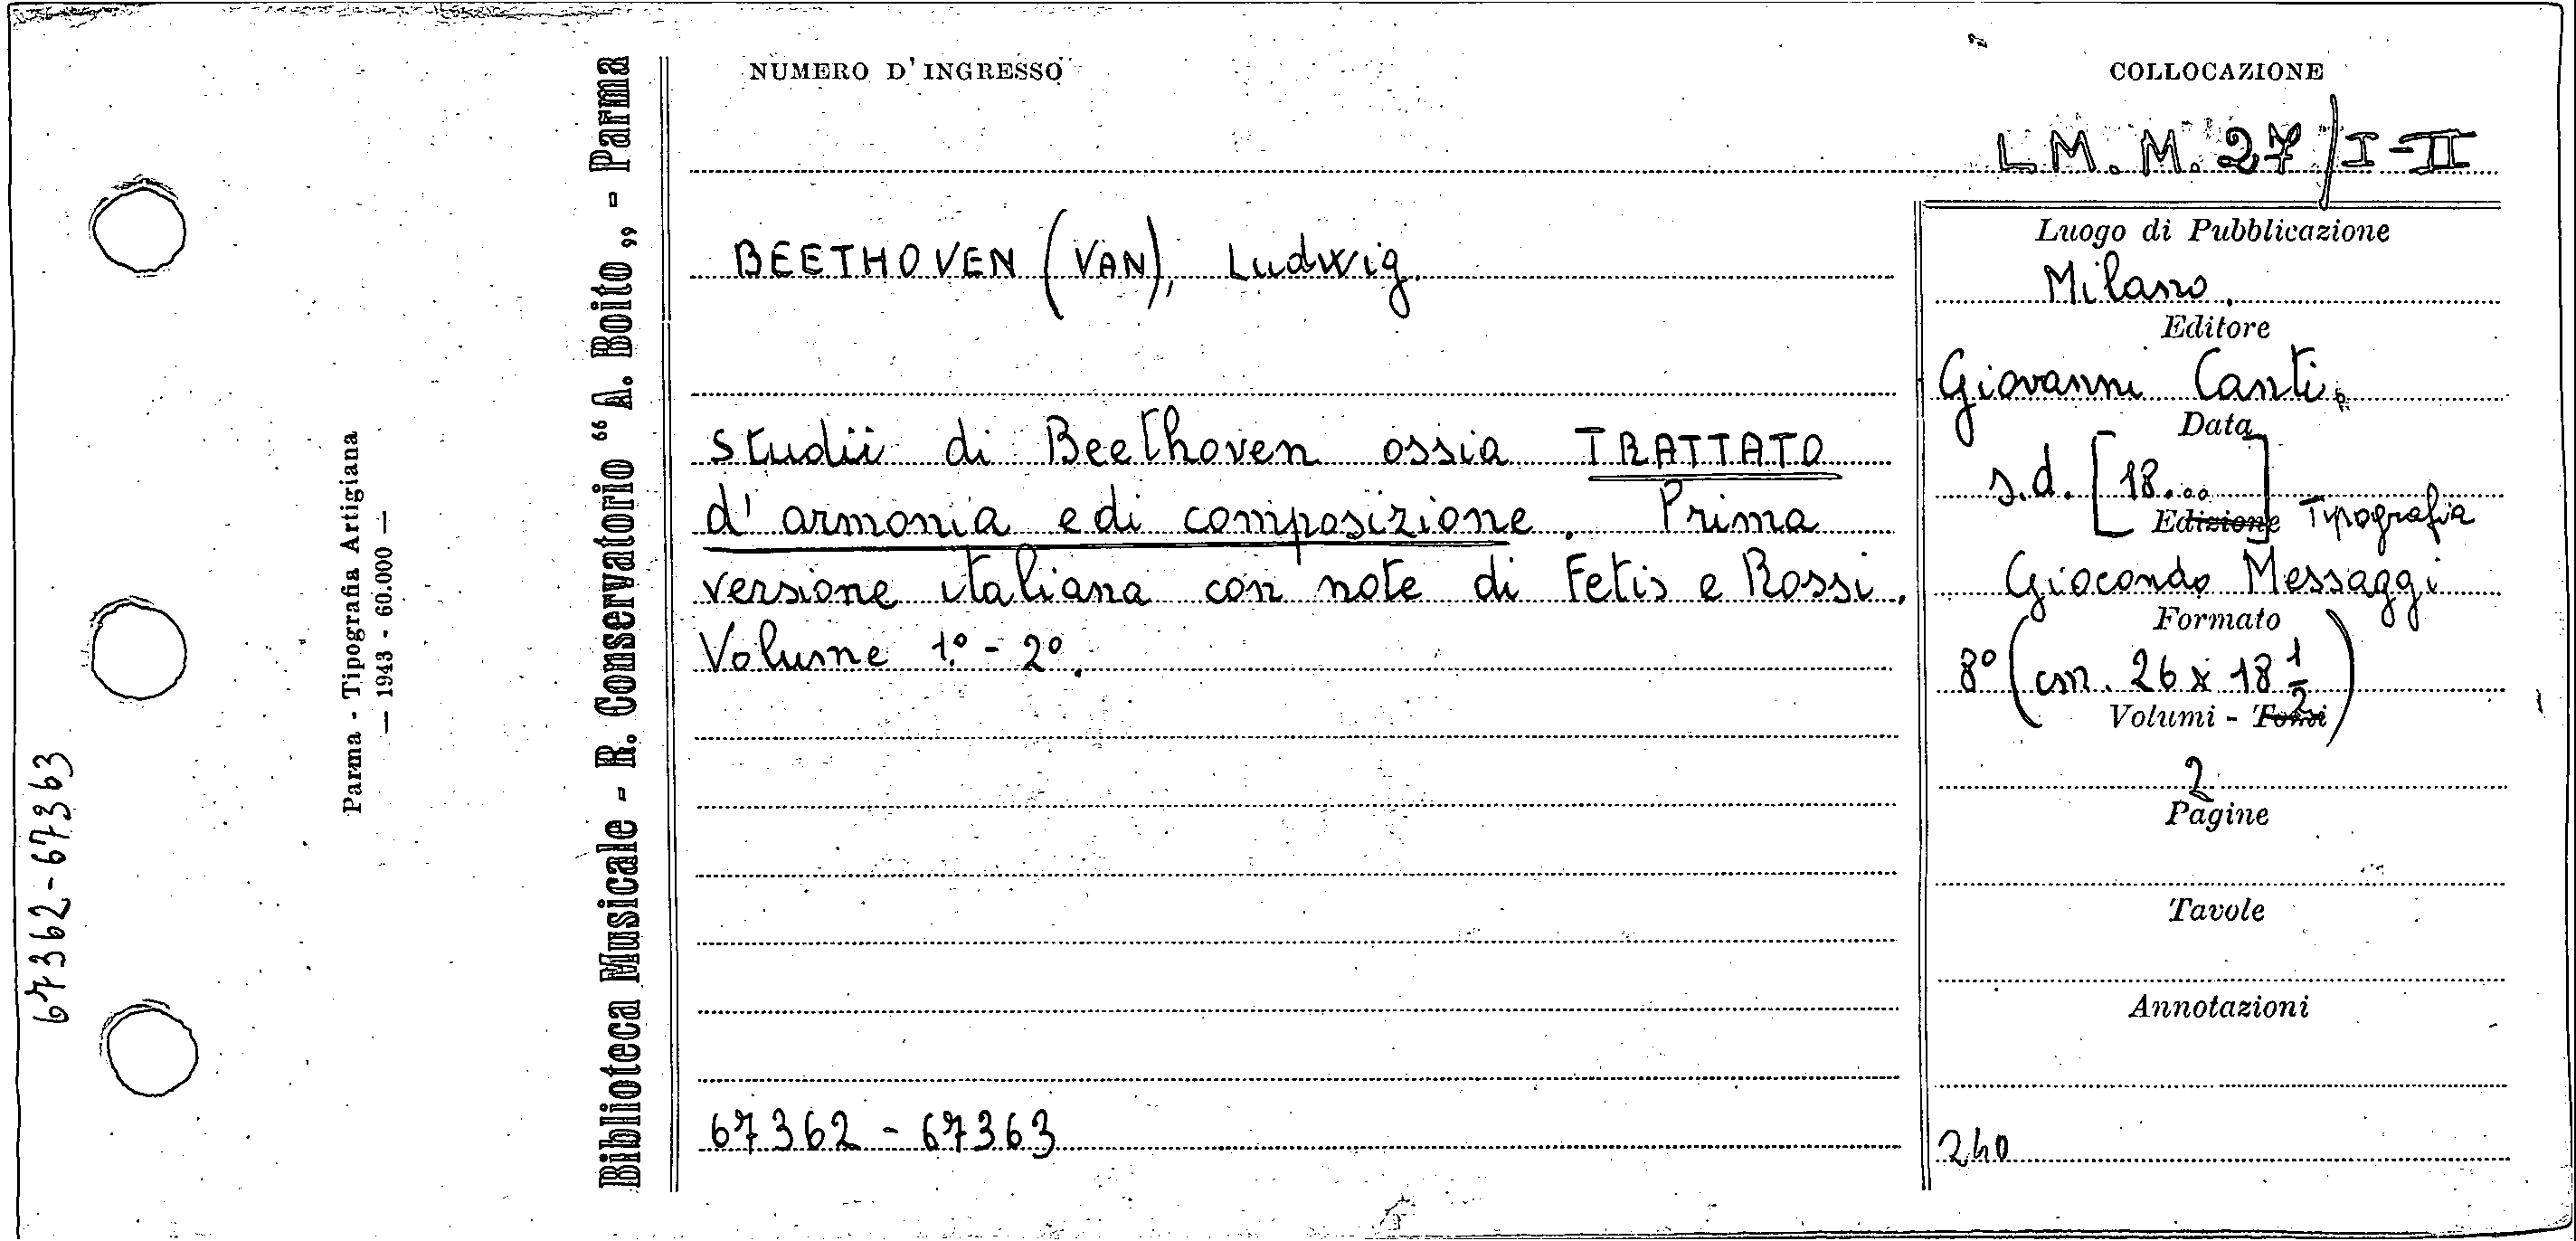 NUMERO D'INGRESSO
COLLOCAZIONE
L M. M. 27/I-II
BEETHOVEN (VAN), Ludwig.
Studii di Beethoven ossia TRATTATO
d'armonia e di composizione. Prima
versione italiana con note di Fetis e Rossi.
Volume 1º - 2º.
67362 - 67363
Luogo di Pubblicazione
Milano.
Editore
Giovanni Canti.
Data
s.d. [18...]
Edizione Tipografia
Giocondo Messaggi
Formato
8º (cm. 26 x 18 1/2)
Volumi - Tomi
2
Pagine
Tavole
Annotazioni
240
Biblioteca Musicale - R. Conservatorio “A. Boito„ - Parma
Parma - Tipografia Artigiana
— 1943 - 60.000 —
67362-67363